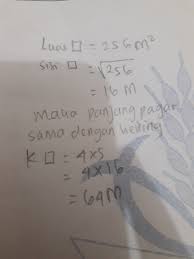 Luas □ = 256 m²
Sisi □ = √256
= 16 M
Maka panjang pagar
sama dengan keliling
K □ = 4 x s
= 4 x 16
= 64 M